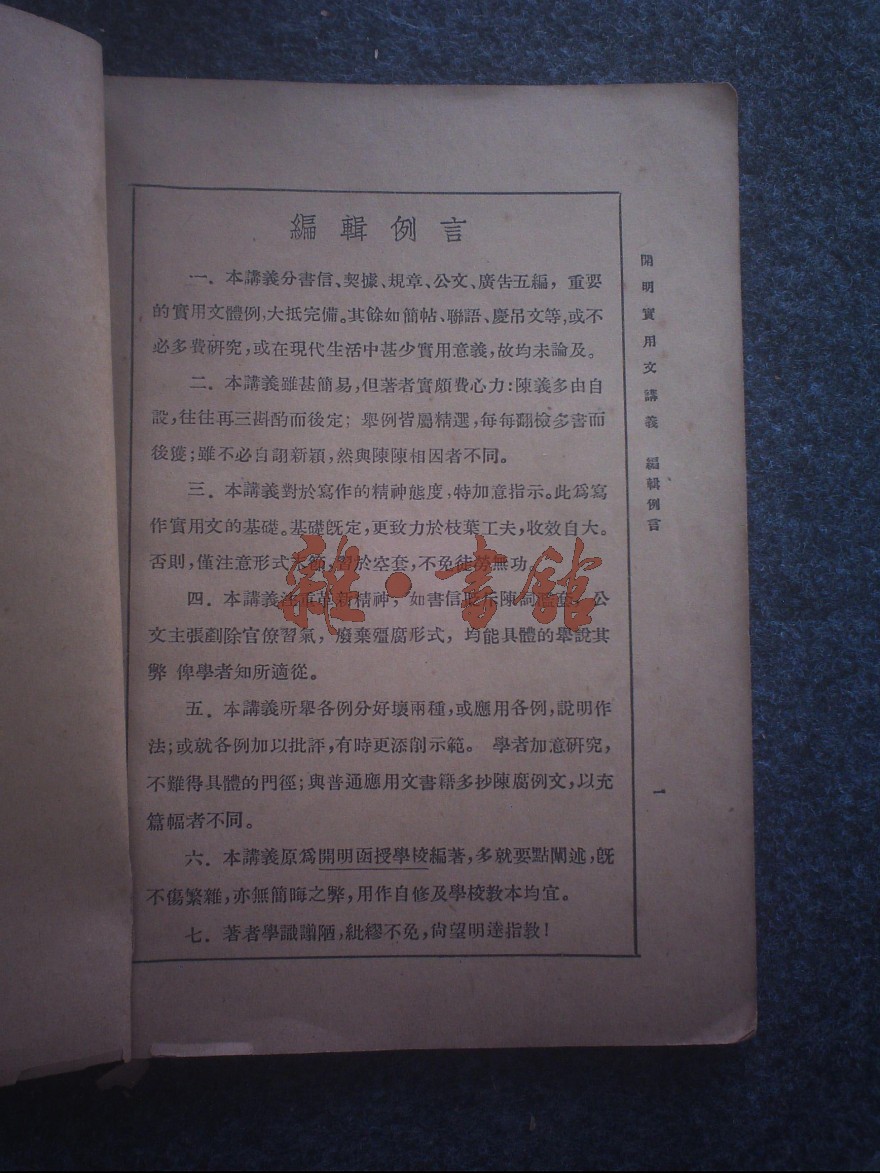 編輯例言
一．本講義分書信、契據、規章、公文、廣告五編，重要
的實用文體例，大抵完備。其餘如簡帖、聯語、慶吊文等，或不
必多費研究，或在現代生活中甚少實用意義，故均未論及。
二．本講義雖甚簡易，但著者實頗費心力：陳義多由自
設，往往再三斟酌而後定；舉例皆屬精選，每每翻檢多書而
後獲；雖不必自詡新穎，然與陳陳相因者不同。
三．本講義對於寫作的精神態度，特加意指示。此爲寫
作實用文的基礎。基礎旣定，更致力於枝葉工夫，收效自大。
否則，僅注意形式末節，習於空套，不免徒勞無功。
四．本講義注重革新精神，如書信 斥陳詞 公
文主張剷除官僚習氣，廢棄殭腐形式，均能具體的舉說其
弊 俾學者知所適從。
五．本講義所舉各例分好壞兩種，或應用各例，說明作
法；或就各例加以批評，有時更添削示範。學者加意研究，
不難得具體的門徑；與普通應用文書籍多抄陳腐例文，以充
篇幅者不同。
六．本講義原爲開明函授學校編著，多就要點闡述，旣
不傷繁雜，亦無簡晦之弊，用作自修及學校敎本均宜。
七．著者學識譾陋，紕繆不免，尙望明達指敎！
開明實用文講義 編輯例言
一
雜·書館